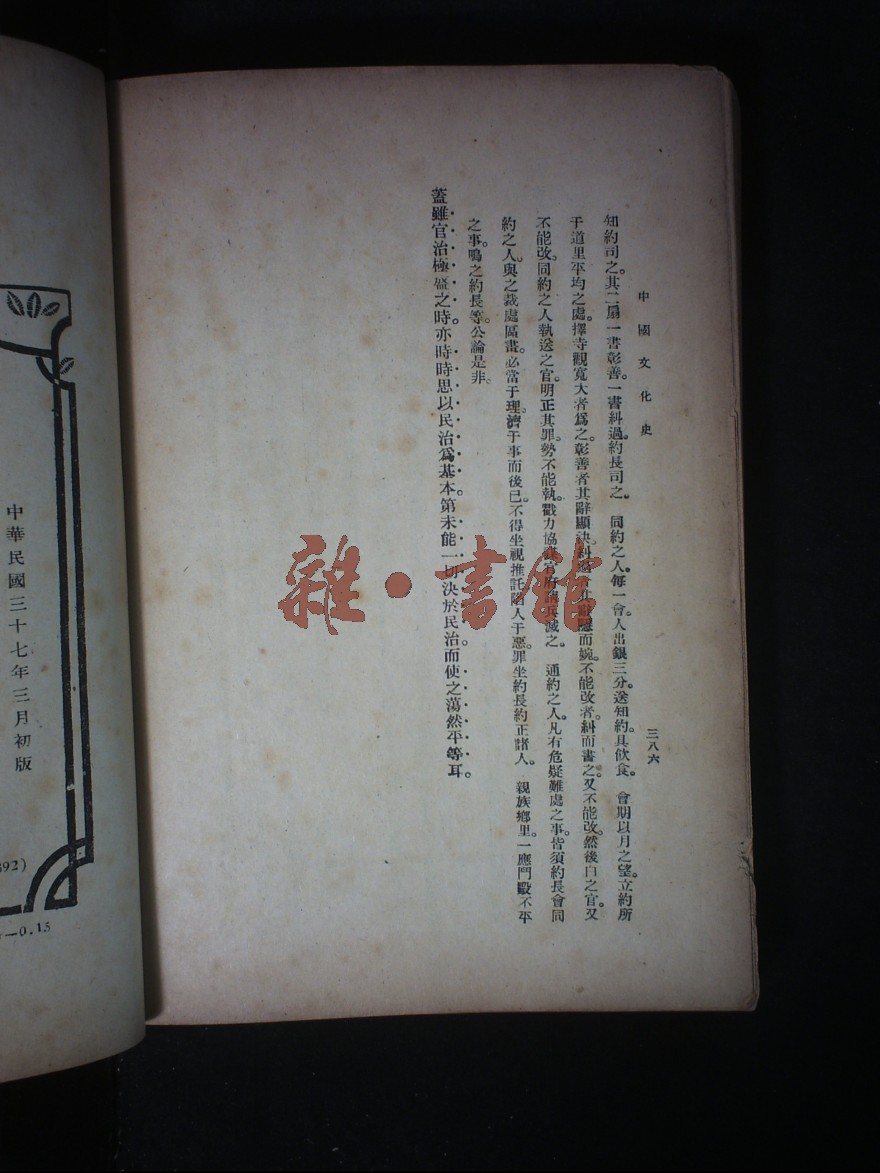 中國文化史
三八六
知約司之。其二扇一書彰善。一書糾過。約長司之。　同約之人。每一會。人出銀三分。送知約。具飲食。　會期以月之望。立約所
于道里平均之處。擇寺觀寬大者爲之。彰善者其辭顯決。糾過者其辭隱而婉。不能改者。糾而書之。又不能改。然後白之官。又
不能改。同約之人執送之官。明正其罪。勢不能執。戮力協謀官府請兵滅之。　通約之人。凡有危疑難處之事。皆須約長會同
約之人。與之裁處區畫。必當于理。濟于事而後已。不得坐視推託。陷人于惡。罪坐約長約正諸人。　親族鄉里。一應鬥毆不平
之事。鳴之約長等。公論是非。
蓋雖官治極盛之時。亦時時思以民治爲基本。第未能一切決於民治。而使之蕩然平等耳。
中華民國三十七年三月初版
92)
—0.15
雜・書館